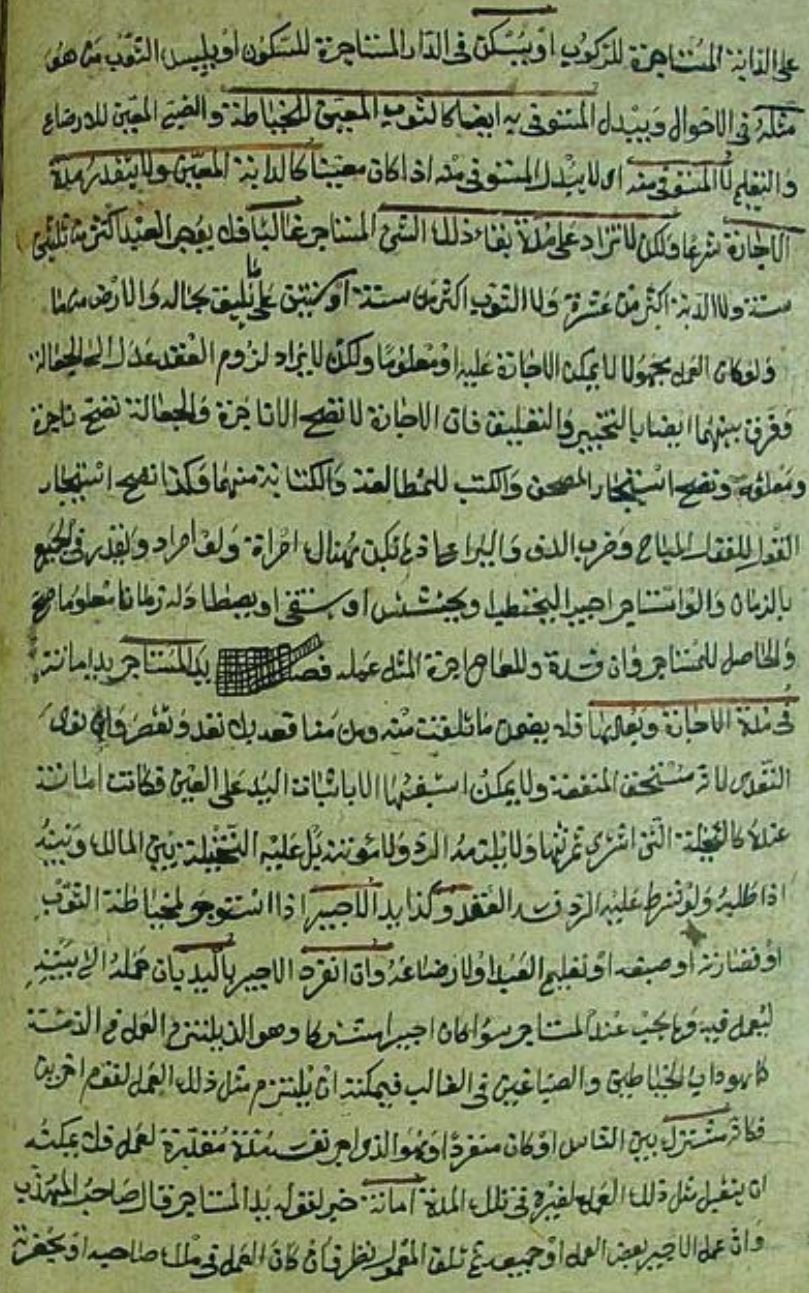 على الدابة المستاجرة للركوب او يسكن في الدار المستاجرة للسكون او يلبس الثوب من هو
مثله في الاحوال ويبدل المستوفى به ايضا كالثوب المعين للخياطة والصبي المعين للارضاع
والتعليم لا المستوفى منه اى لا يبدل المستوفى منه اذا كان معينا كالدابة المعين ولا يتقدر مدة
الاجارة شرعا ولكن لا تزاد على مدة بقاء ذلك الشئ المستاجر غالبا فلا يوجر العبد اكثر من ثلثين
سنة ولا الدابة اكثر من عشرة ولا الثوب اكثر من سنة او سنتين على ما يليق بحاله والارض مهما
ولو كان العمل مجهولا لا يمكن الاجارة عليه او معلوما ولكن لا يراد لزوم العقد عدل الى الجعالة
وفرق بينهما ايضا بالتخيير والتعليق فان الاجارة لا تصح الا ناجزة والجعالة تصح ناجزة
ومعلقة وتصح استيجار المصحف والكتب للمطالعة والكتابة منهما وكذا تصح استيجار
القوال للغناء المباح وضرب الدف والبراعة اذ لم تكن هناك امراة ولا امراد ويقدر في الجميع
بالزمان والو استاجر اجيرا ليحتطب او يحتشش او يستقى او يصطاد له زمانا معلوما صح
والحاصل للمستاجر وان فسدة وللعامل اجرة المثل عمله فصل يد المستاجر يد امانة
في مدة الاجارة وبعدها فلا يضمن ما تلفت منه ومن منا قعد بلا تعد وتقصر
التعدى لانه مستحق المنفعة ولا يمكن استيفائها الا باثبات اليد على العين فكانت امانة
عنده كالنخلة التى اشترى ثمرتها ولا يلزمه الرد ولا مؤنته بل عليه التخلية بين المالك وبينه
اذا طلبه ولو شرط عليه الرد فسد العقد وكذا يد الاجير اذا استوجر لخياطة الثوب
او قصارته او صبغه او تعليم العبد او لارضاعه وان انفرد الاجير باليد بان حمله الى بيته
ليعمل فيه ويا يجب عند المستاجر سوا كان اجيرا مشتركا وهو الذ يلتزم العمل في الذمة
كما هو داب الخياطين والصباغين في الغالب فيمكنه ان يلتزم مثل ذلك العمل لقوم اخرين
فكانه مشترك بين الناس او كان منفردا وهو الذى اجر نفسه مدة مقدرة لعمل فلا يمكنه
ان يتقبل مثل ذلك العمل لغيره في تلك المدة امانة خبر لقوله يد المستاجر قال صاحب المهذب
وان عمل الاجير بعض العمل او جميعه ثم تلف المعمول نظر فان كان العمل في ملك صاحبه او بحضرته